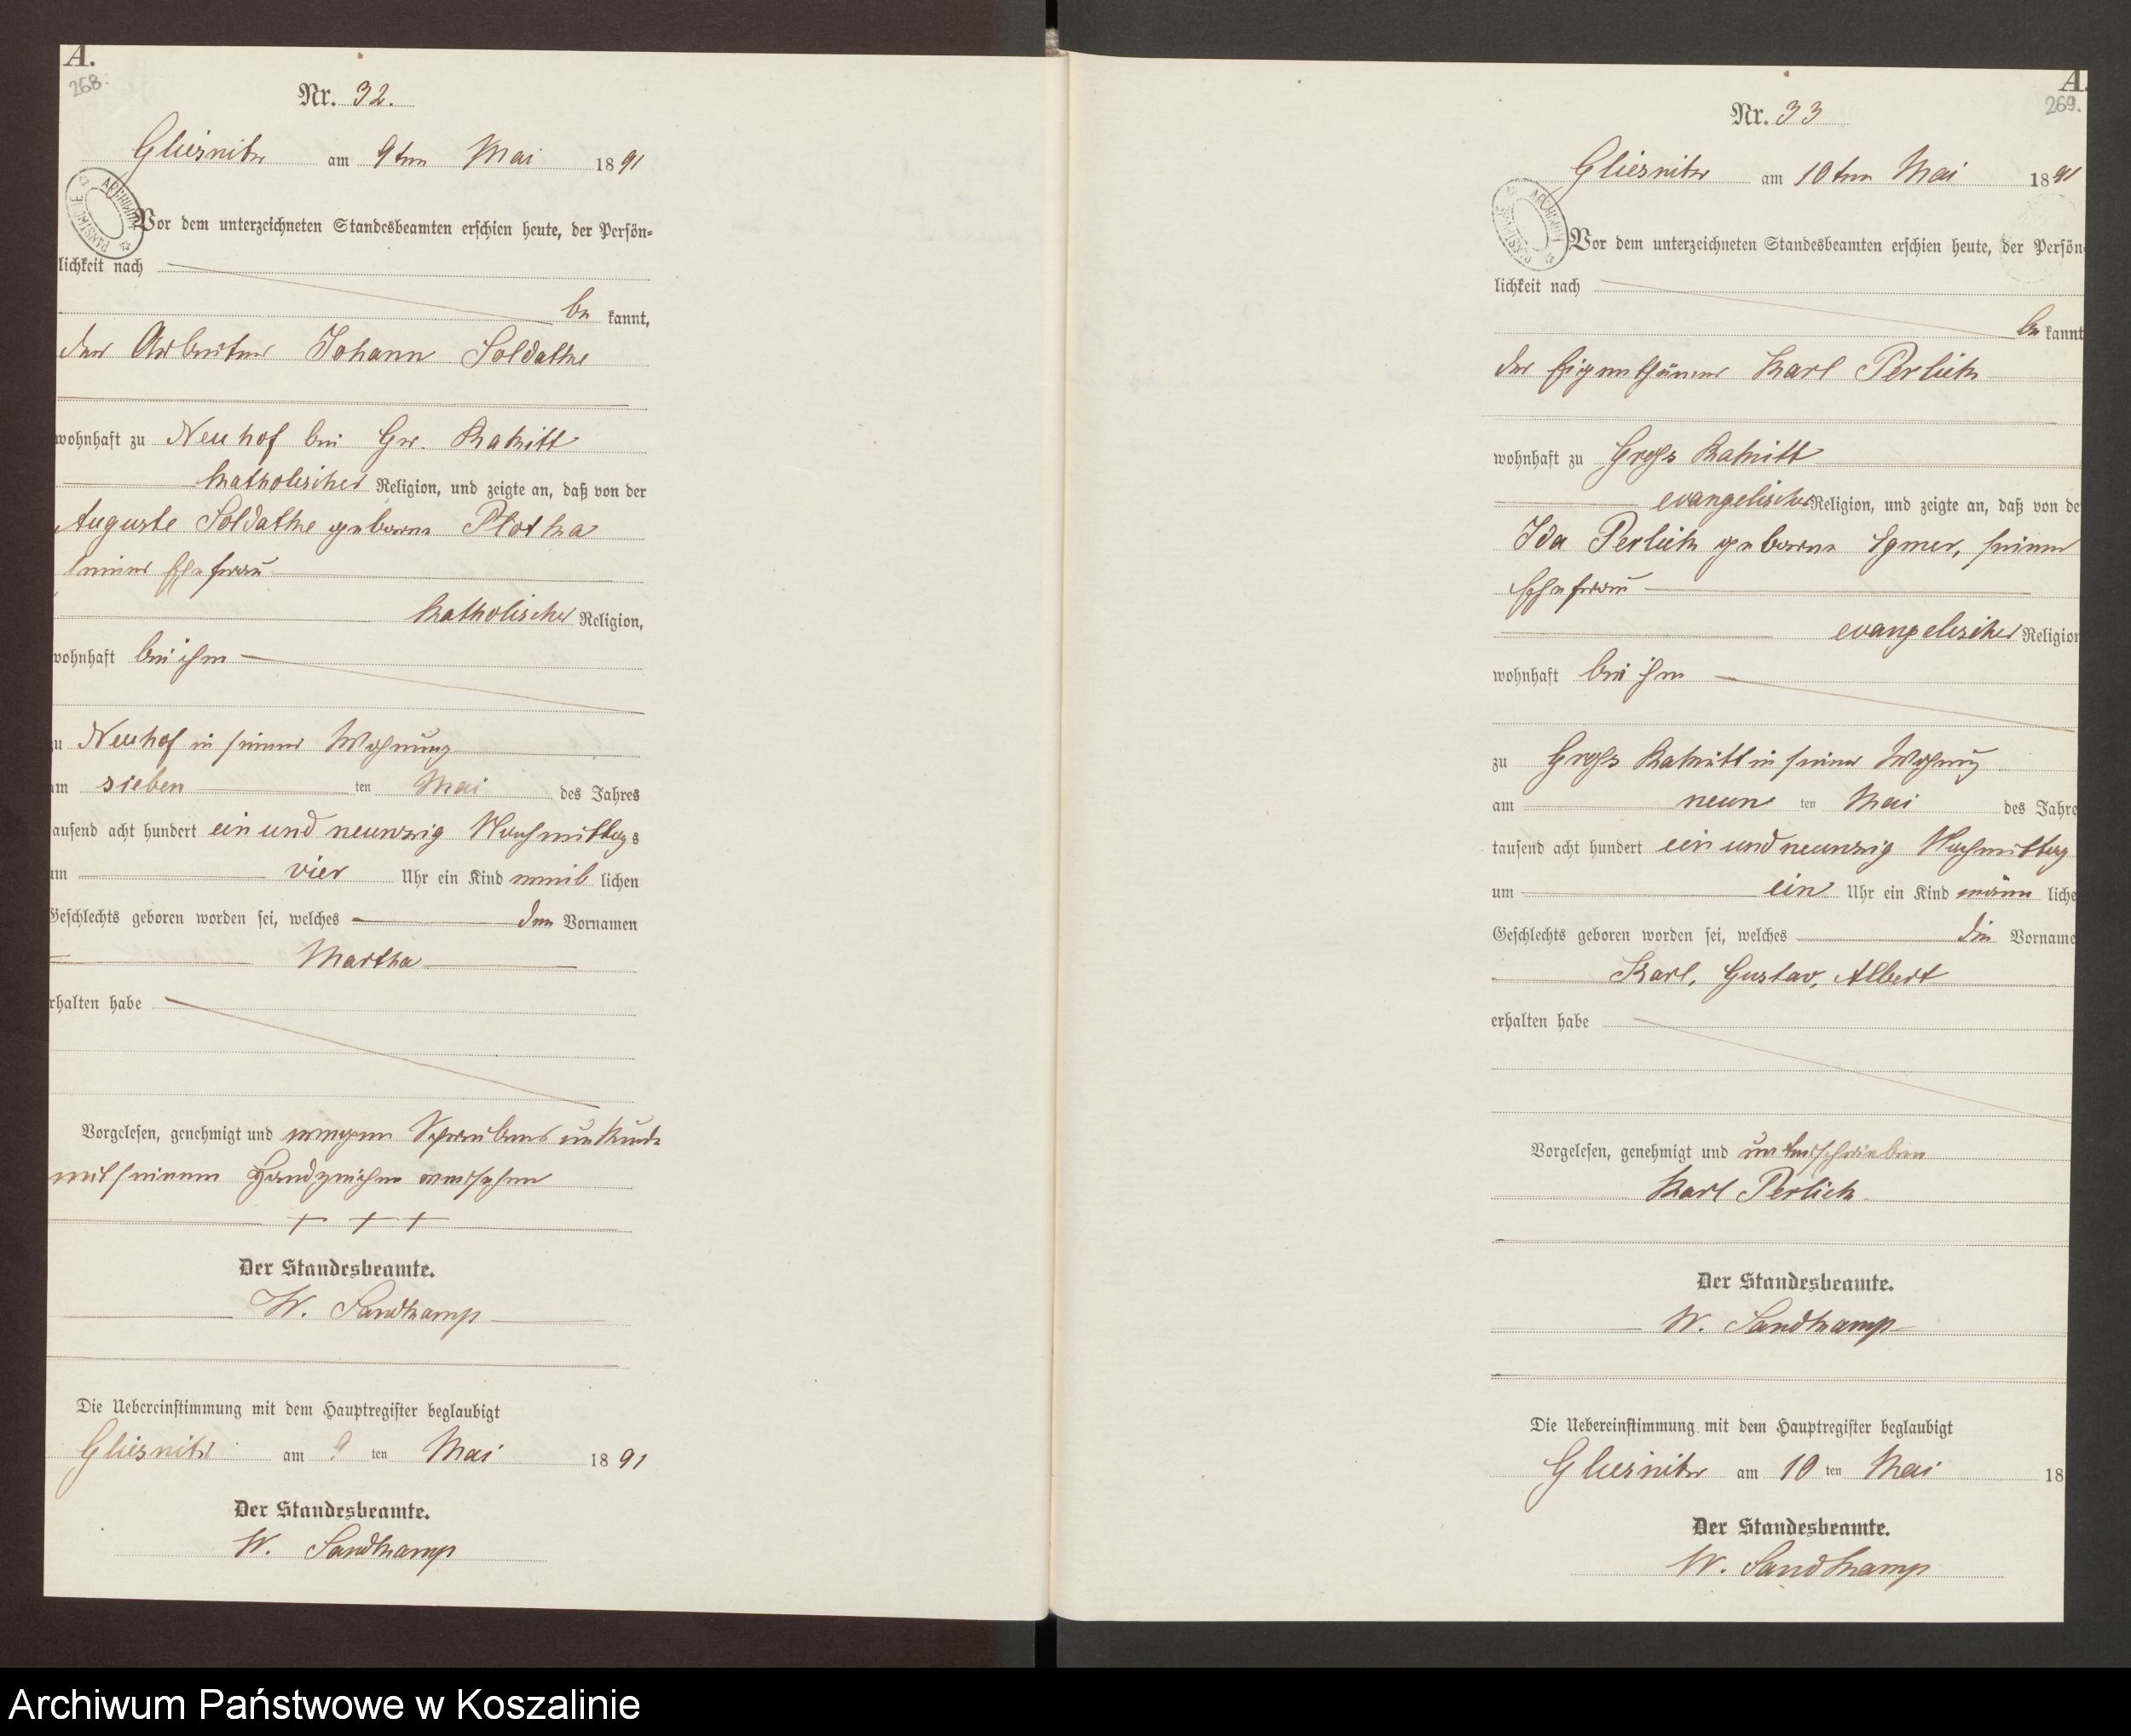 A.
268.
Nr. 32.
Gliesnitz am 9ten Mai 1891
ARCHIWUM PAŃSTWOWE
Vor dem unterzeichneten Standesbeamten erschien heute, der Persön-
lichkeit nach
be kannt,
der Arbeiter Johann Soldatke
wohnhaft zu Neuhof bei Gr. Rakitt
katholischer Religion, und zeigte an, daß von der
Auguste Soldatke geborne Plotka
seiner Ehefrau
katholischer Religion,
wohnhaft bei ihm
zu Neuhof in seiner Wohnung
am sieben ten Mai des Jahres
tausend acht hundert ein und neunzig Nachmittags
um vier Uhr ein Kind weib lichen
Geschlechts geboren worden sei, welches den Vornamen
Martha
erhalten habe
Vorgelesen, genehmigt und wegen Schreibens unkunde
mit seinem Handzeichen versehen
+ + +
Der Standesbeamte.
W. Sandkamp
Die Uebereinstimmung mit dem Hauptregister beglaubigt
Gliesnitz am 9 ten Mai 1891
Der Standesbeamte.
W. Sandkamp
A.
269.
Nr. 33
Gliesnitz am 10ten Mai 1891
Vor dem unterzeichneten Standesbeamten erschien heute, der Persön-
lichkeit nach
be kannt
der Eigenthümer Karl Perlick
wohnhaft zu Gross Rakitt
evangelischer Religion, und zeigte an, daß von de
Ida Perlick geborne Egmer, seiner
Ehefrau
evangelischer Religion
wohnhaft bei ihm
zu Gross Rakitt in seiner Wohnung
am neun ten Mai des Jahre
tausend acht hundert ein und neunzig Nachmittag
um ein Uhr ein Kind männ liche
Geschlechts geboren worden sei, welches die Vorname
Karl, Gustav, Albert
erhalten habe
Vorgelesen, genehmigt und unterschrieben
Karl Perlick
Der Standesbeamte.
W. Sandkamp
Die Uebereinstimmung mit dem Hauptregister beglaubigt
Gliesnitz am 10 ten Mai 18
Der Standesbeamte.
W. Sandkamp
Archiwum Państwowe w Koszalinie